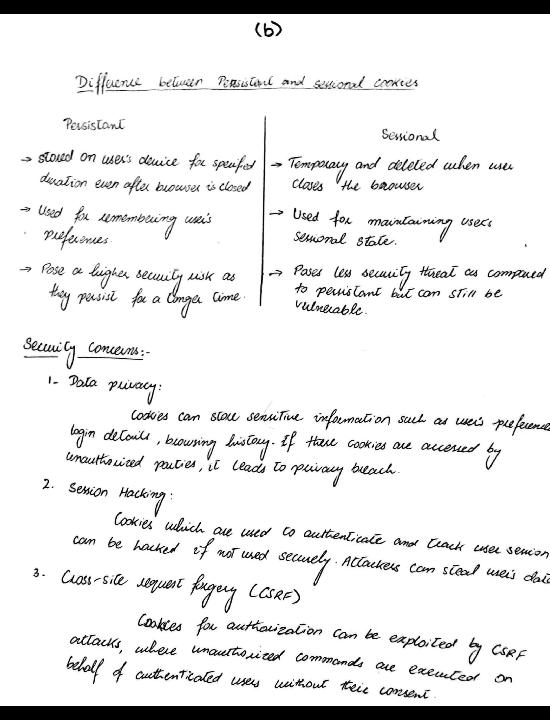 (b)
Difference between Persistant and sessional cookies
Persistant
→ stored on user's device for specified
duration even after browser is closed
→ Used for remembering user's
preferences.
→ Pose a higher security risk as
they persist for a longer time.
Sessional
→ Temporary and deleted when user
closes the browser
→ Used for maintaining users
sessional state.
→ Poses less security threat as compared
to persistant but can still be
vulnerable.
Security concerns:-
1- Data privacy:
Cookies can store sensitive information such as user's preference
login details, browsing history. If these cookies are accessed by
unauthorized parties, it leads to privacy breach.
2. Session Hacking:
Cookies which are used to authenticate and track user session
can be hacked if not used securely. Attackers can steal user's data
3. Cross-site request forgery (CSRF)
Cookies for authorization can be exploited by CSRF
attacks, where unauthorized commands are executed on
behalf of authenticated users without their consent.